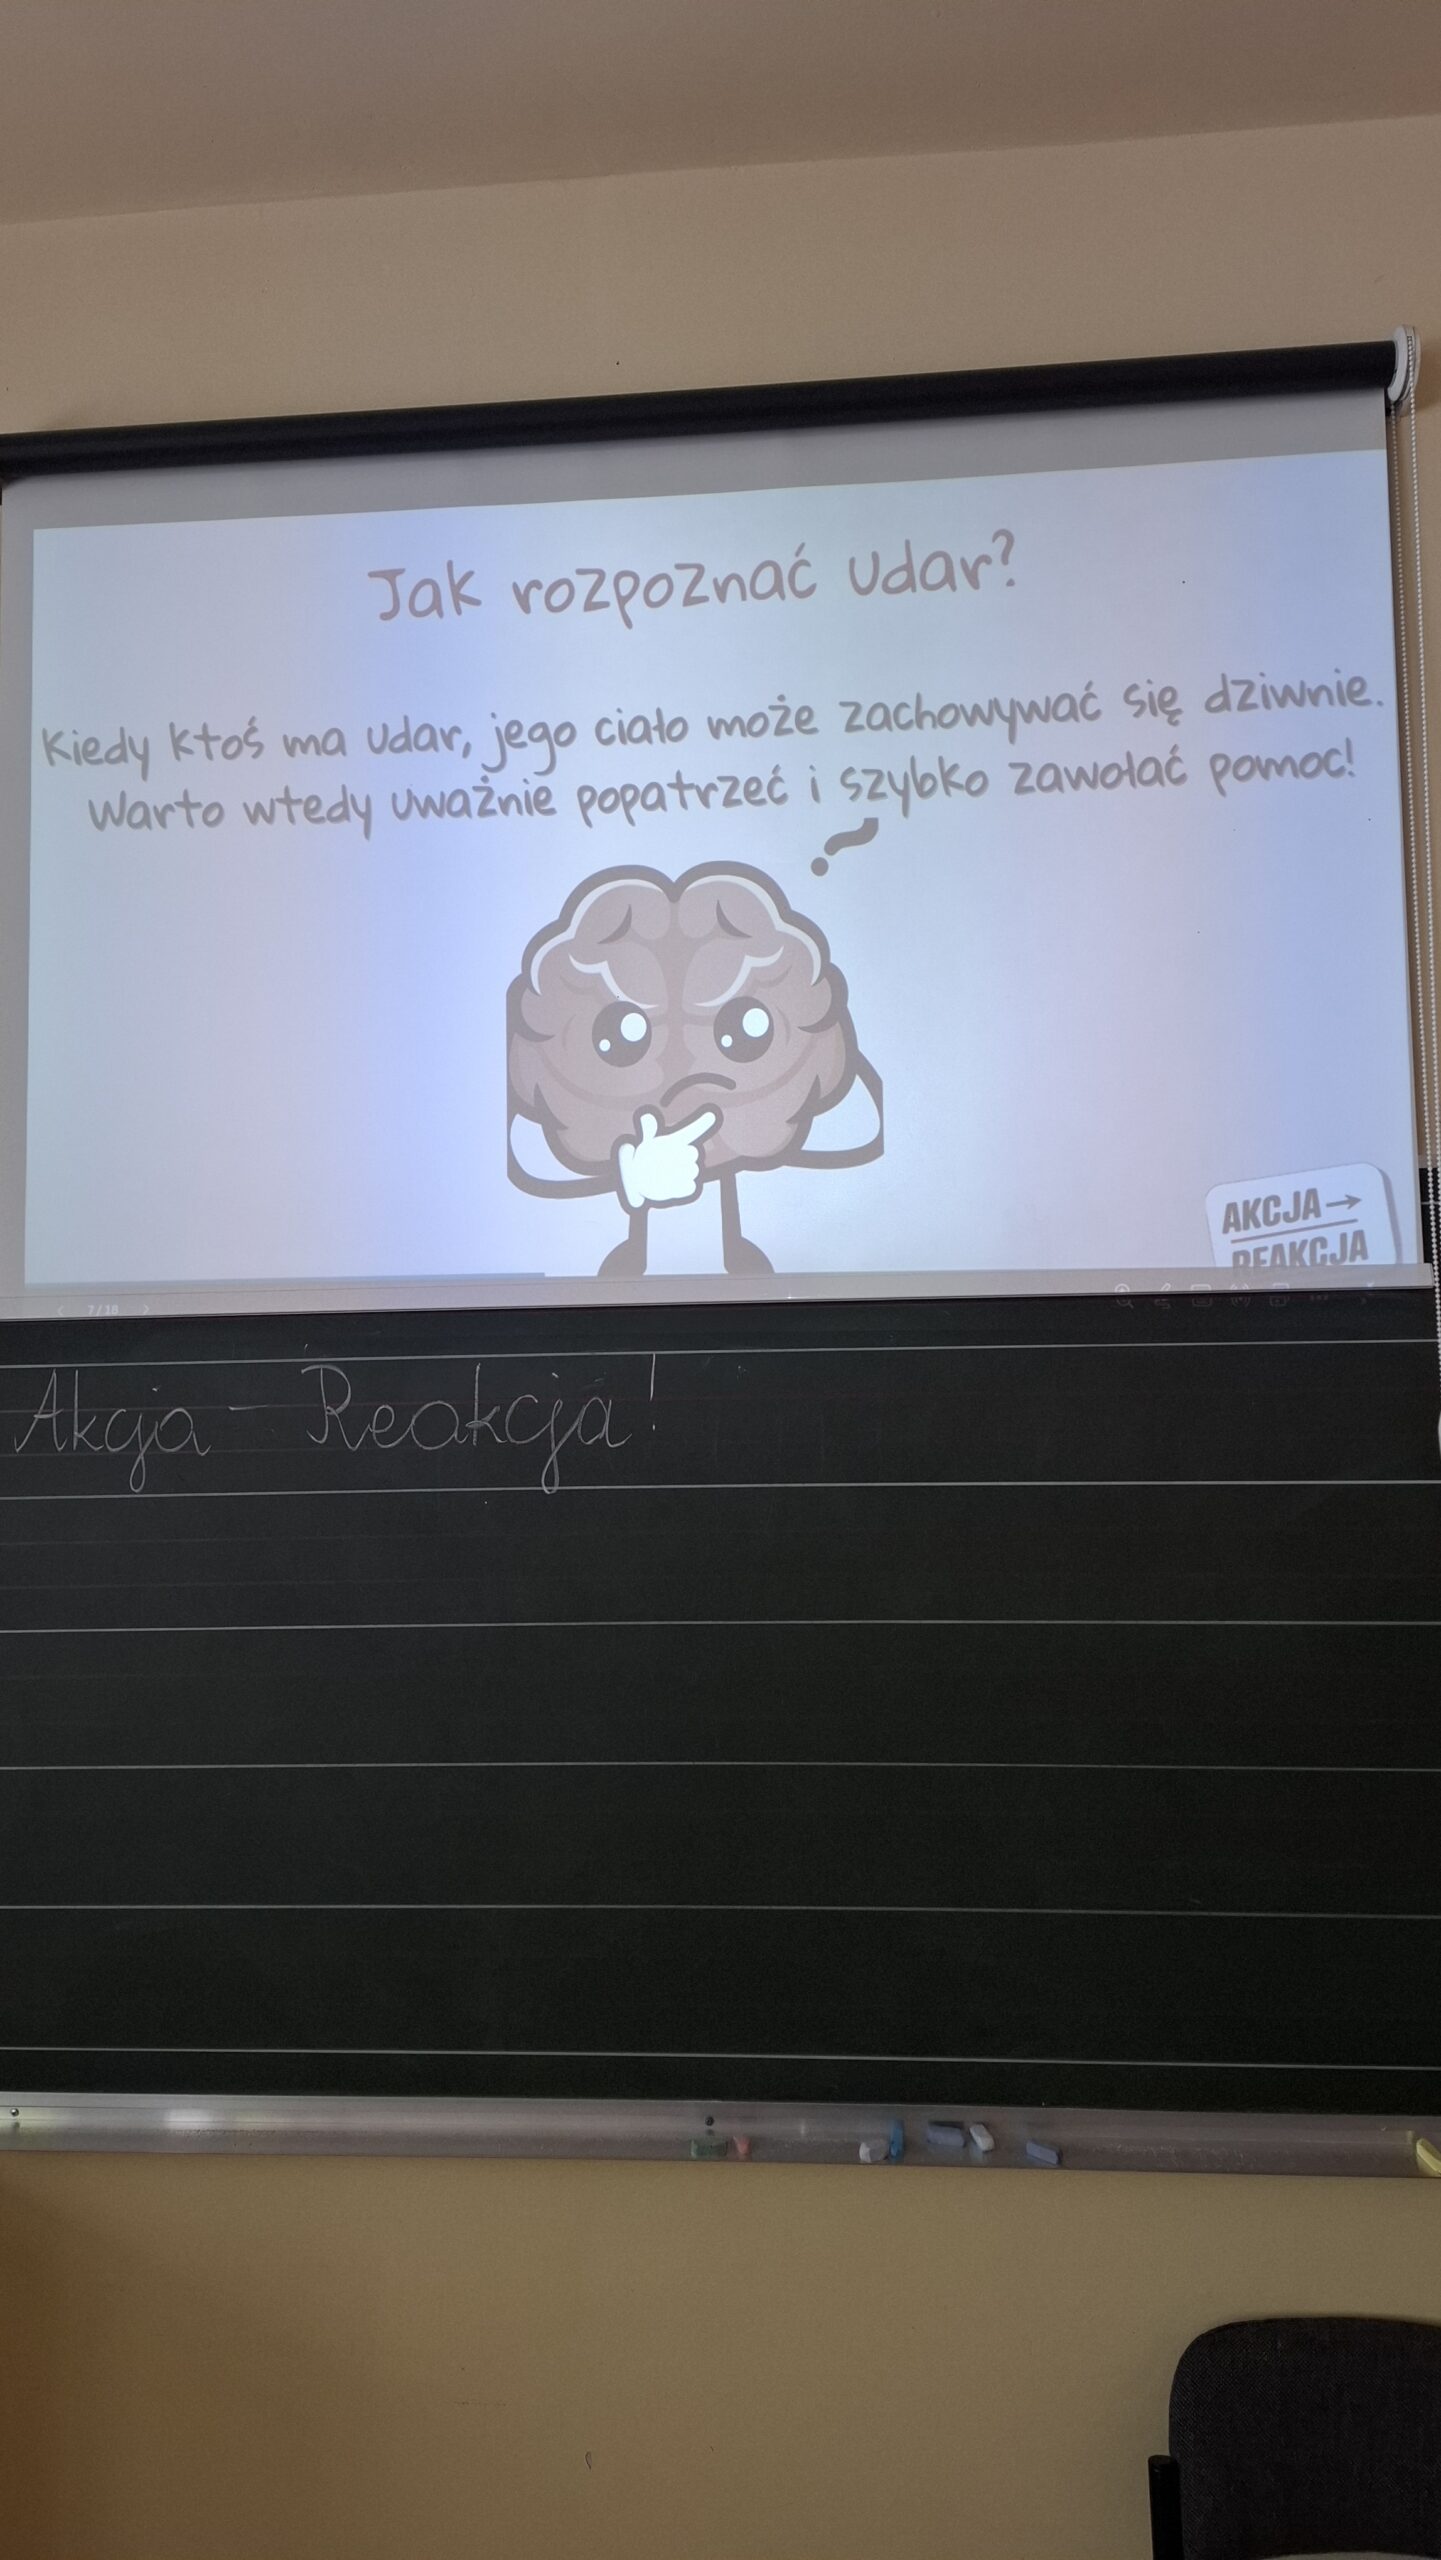 Jak rozpoznać udar?
Kiedy ktoś ma udar, jego ciało może zachowywać się dziwnie.
Warto wtedy uważnie popatrzeć i szybko zawołać pomoc!
AKCJA→
REAKCJA
7/18
Akcja - Reakcja!